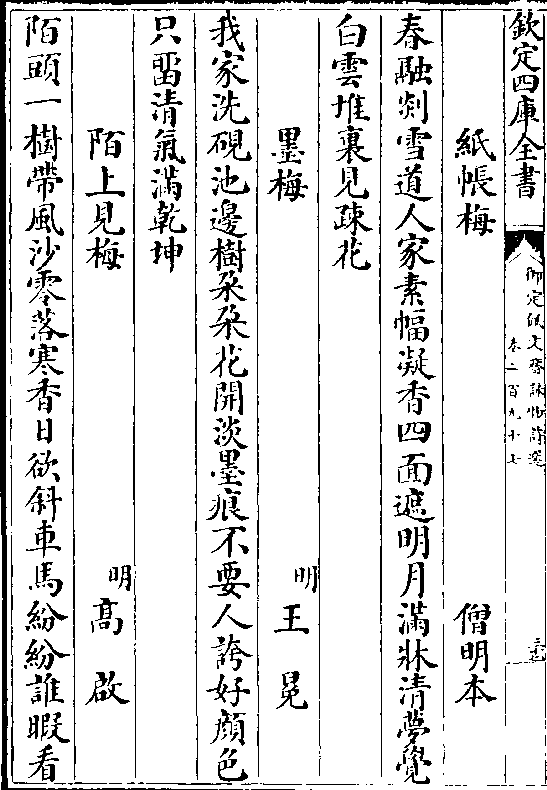 欽定四庫全書
御定佩文齋詠物詩選
卷二百九十七
紙帳梅
僧明本
春融剡雪道人家素幅凝香四面遮明月滿牀清夢覺
白雲堆裏見疎花
墨梅
明
王冕
我家洗硯池邊樹朶朶花開淡墨痕不要人誇好顔色
只畱清氣滿乾坤
陌上見梅
明
高啟
陌頭一樹帶風沙零落寒香日欲斜車馬紛紛誰暇看